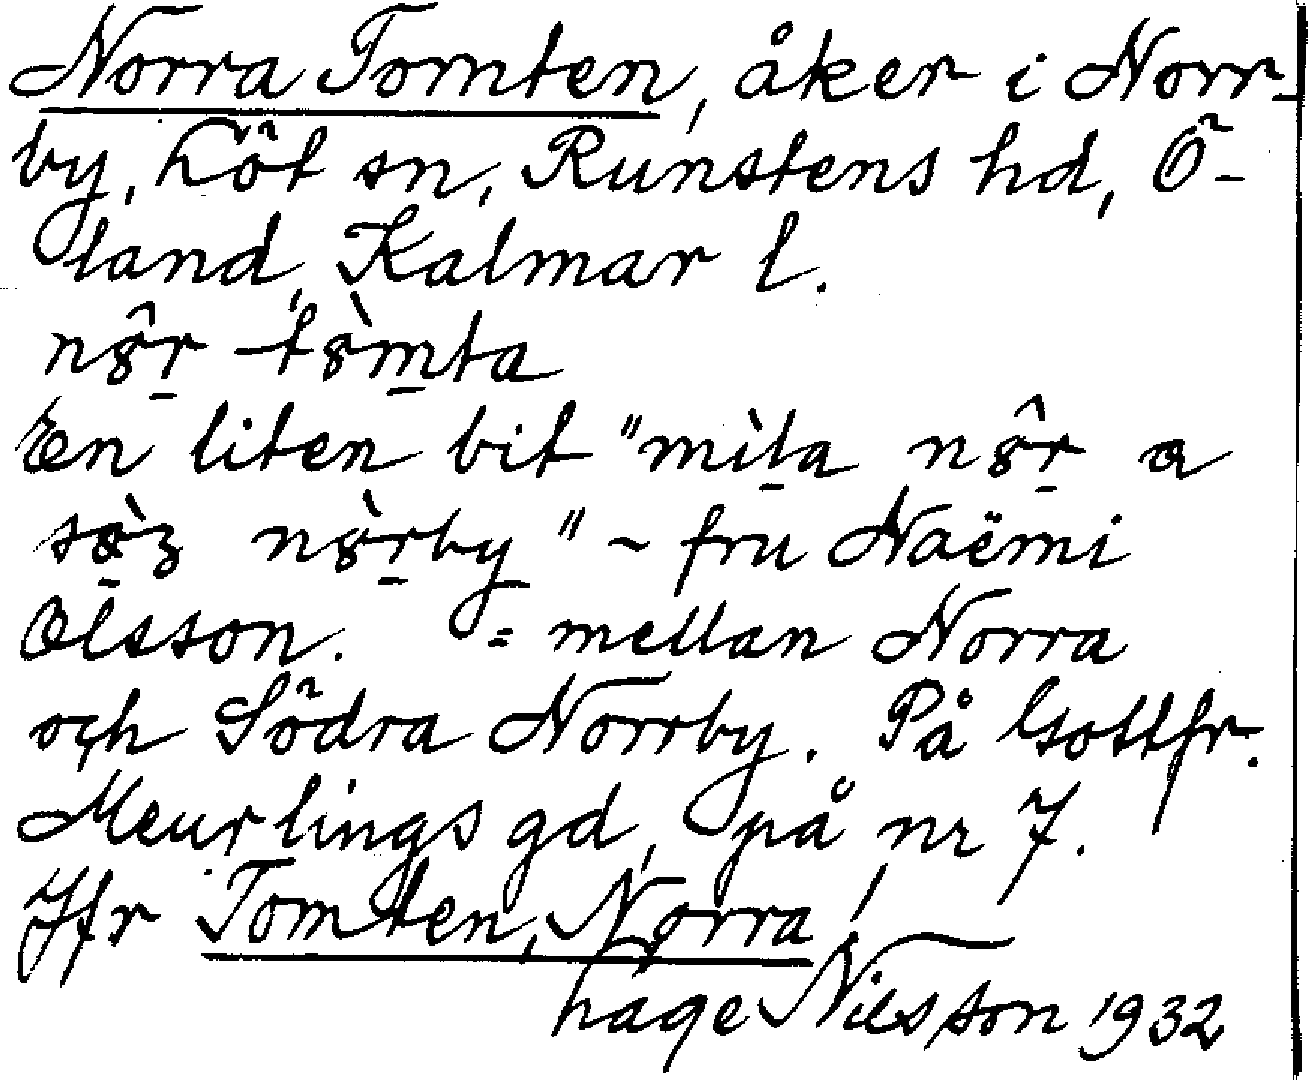 Norra Tomten, åker i Norr-
by, Löt sn, Runstens hd, Ö-
land, Kalmar l.
En liten bit "
" ~ fru Naëmi
Olsson. = mellan Norra
och Södra Norrby. På Gottfr.
Meurlings gd, på nr 7.
Jfr Tomten, Norra,
Hage Nilsson 1932